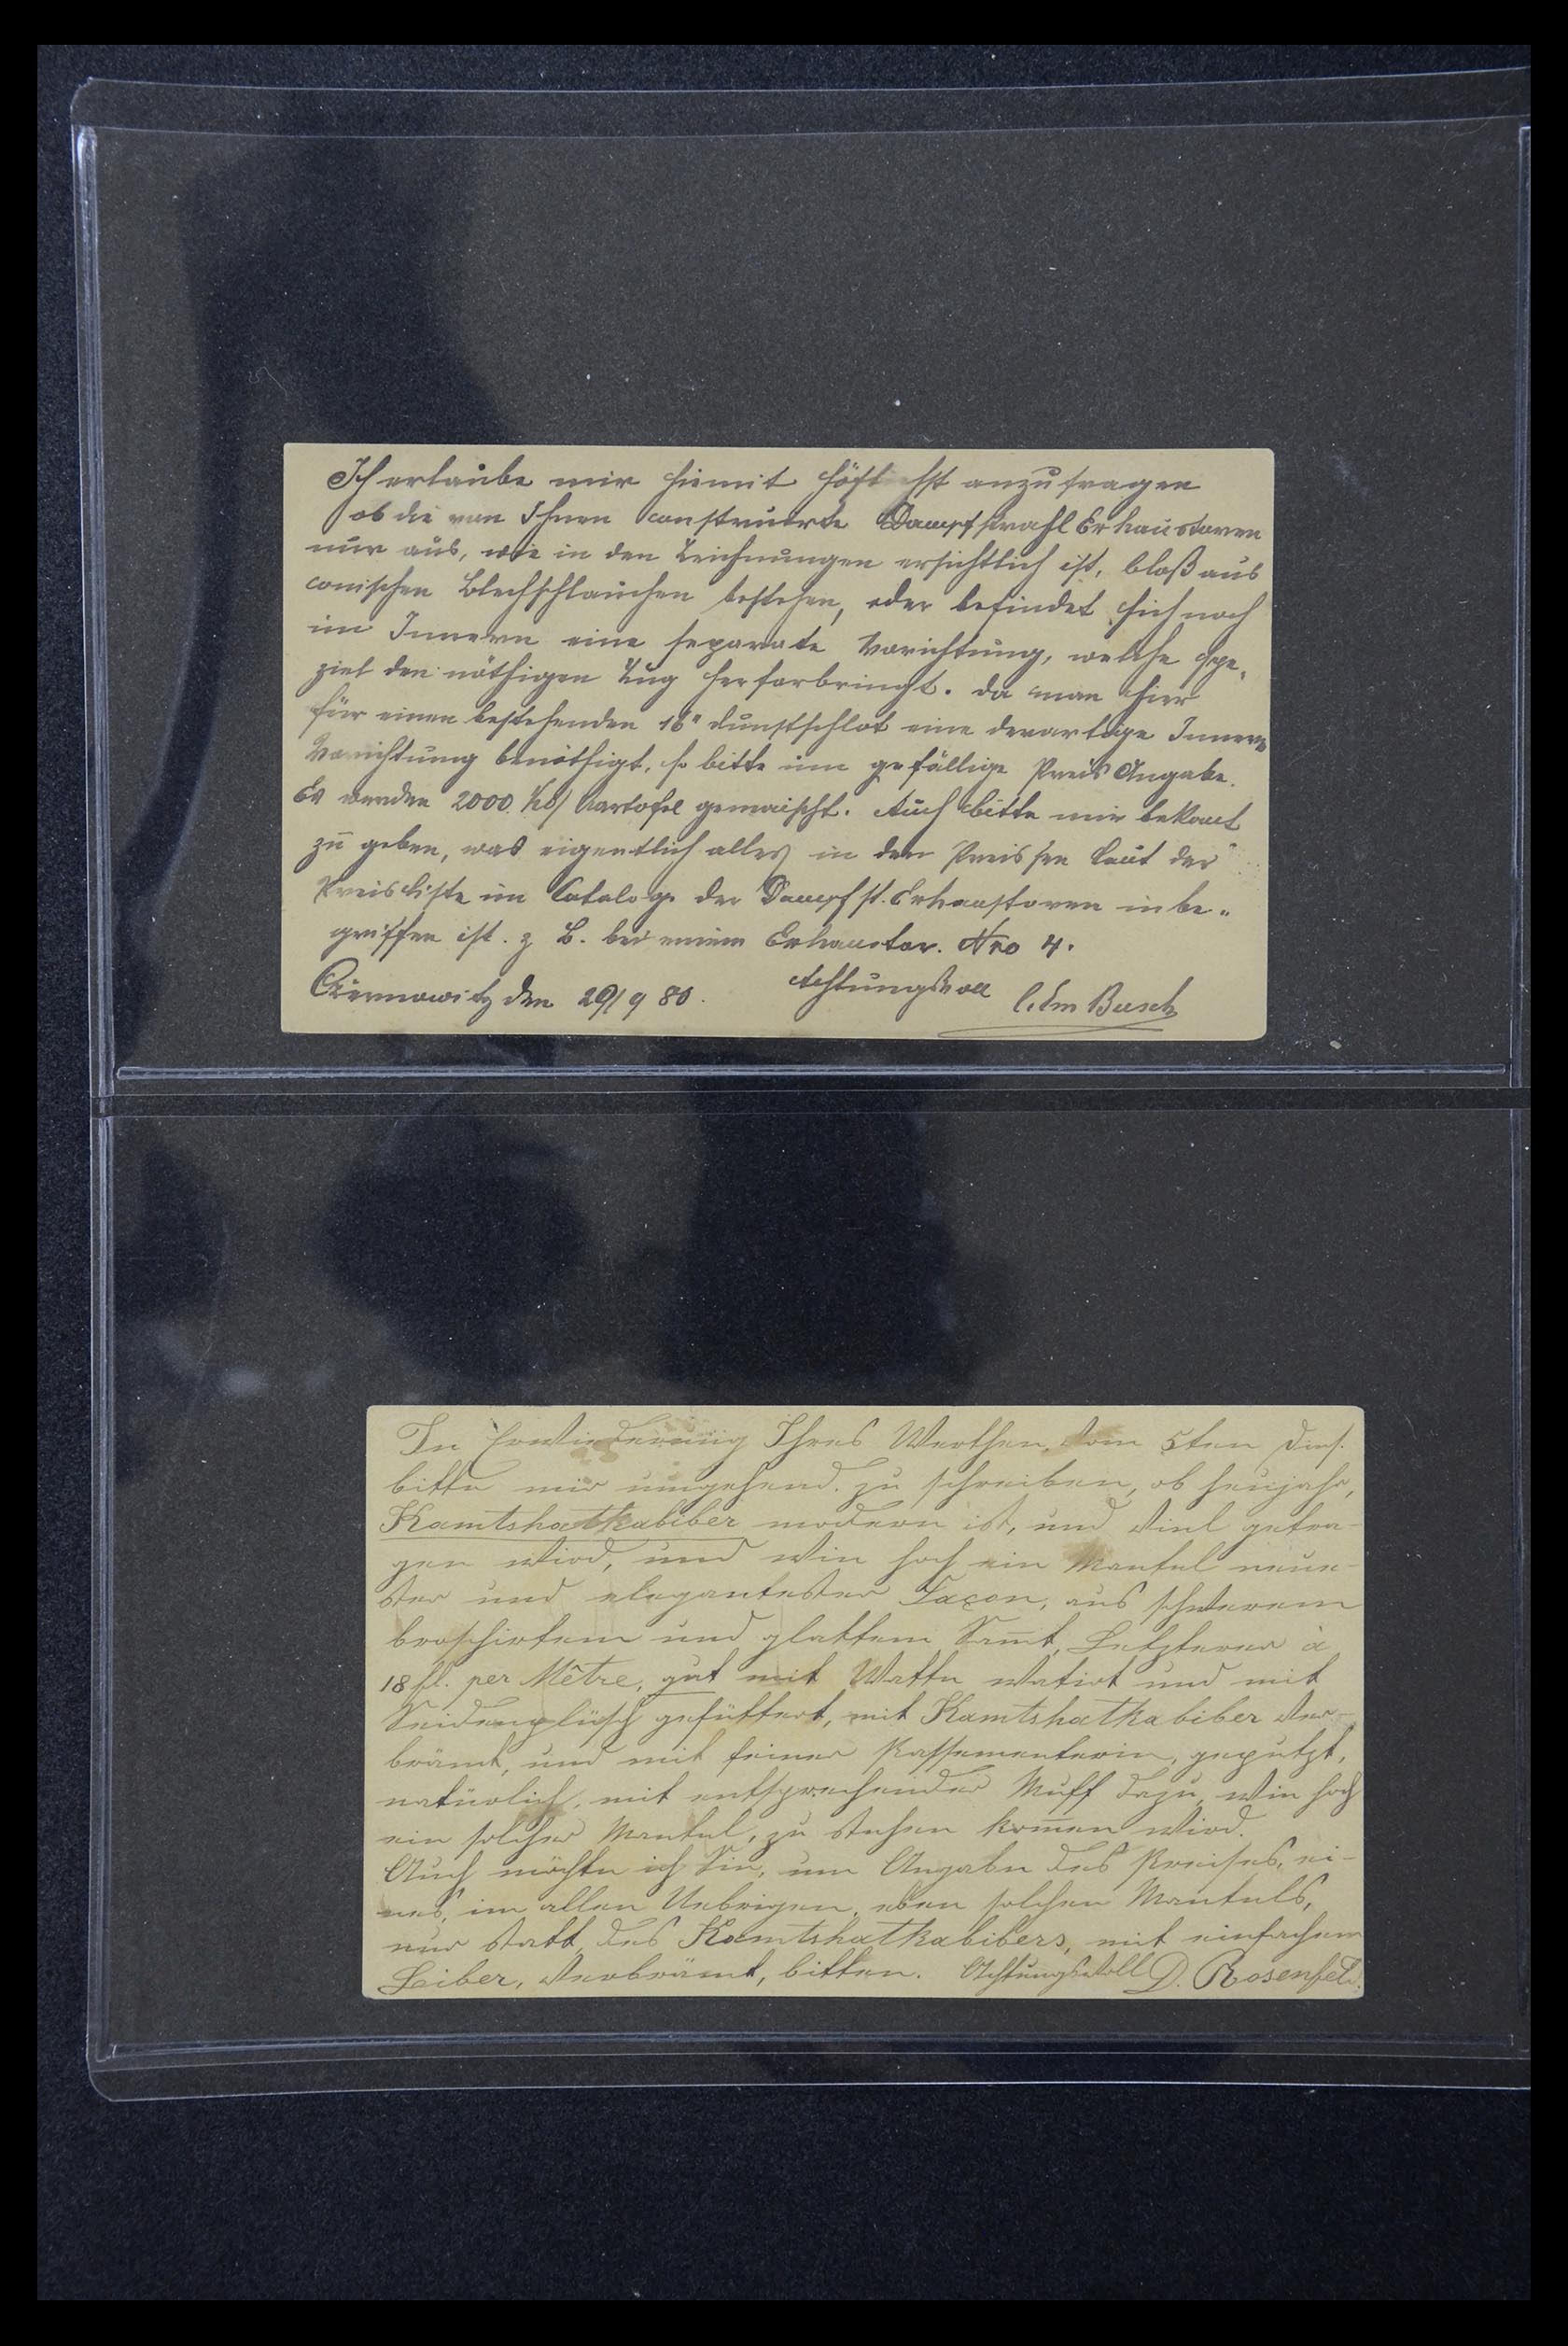 Ich erlaube mir hiemit höflichst anzufragen
ob die von Ihnen construirte Dampfstrahl Exhaustoren
nur aus, wie in den Zeichnungen ersichtlich ist, bloß aus
conischen Blechschläuchen bestehen, oder befindet sich noch
im Innern eine separate Vorichtung, welche spe-
ziel den nöthigen Zug herforbringt. Da man hier
für einen bestehenden 16" Dunstschlot eine derartige Innere
Vorrichtung benöthigt, so bitte um gefällige Preis Angabe.
Es werden 2000 Kartofel gemaischt. Auch bitte mir bekant
zu geben, was eigentlich alles in den Preissen laut der
Preisliste im Cataloge der Dampfst. Exhaustoren inbe-
griffen ist. z. B. bei einem Exhaustor. Nro 4.
Czernowitz den 29/9 80. Achtungsvoll Busch
In Erwiederung Ihres Werthen, vom 5ten dies.
bitte mir umgehend zu schreiben, ob heujahr,
Kamtshatkabiber modern ist, und viel getra-
gen wird, und wie hoch ein Mantel neue-
ster und elegantester Façon, aus schwerem
broschirtem und glattem Samt, Letzterer à
18 fl. per Mêtre, gut mit Watte watirt und mit
Seidenplüsch gefüttert, mit Kamtshatkabiber ver-
brämt, und mit feiner Passementerie, geputzt,
natürlich, mit entsprechender Muff dazu, wie hoch
ein solcher Mantel, zu stehen kommen wird.
Auch möchte ich Sie, um Angabe des Preises, ei-
nes, im allen Uebrigen, eben solchen Mantels,
nur statt des Kamtshatkabibers, mit einfachem
Biber, verbrämt, bitten. Achtungsvoll D. Rosenfeld.